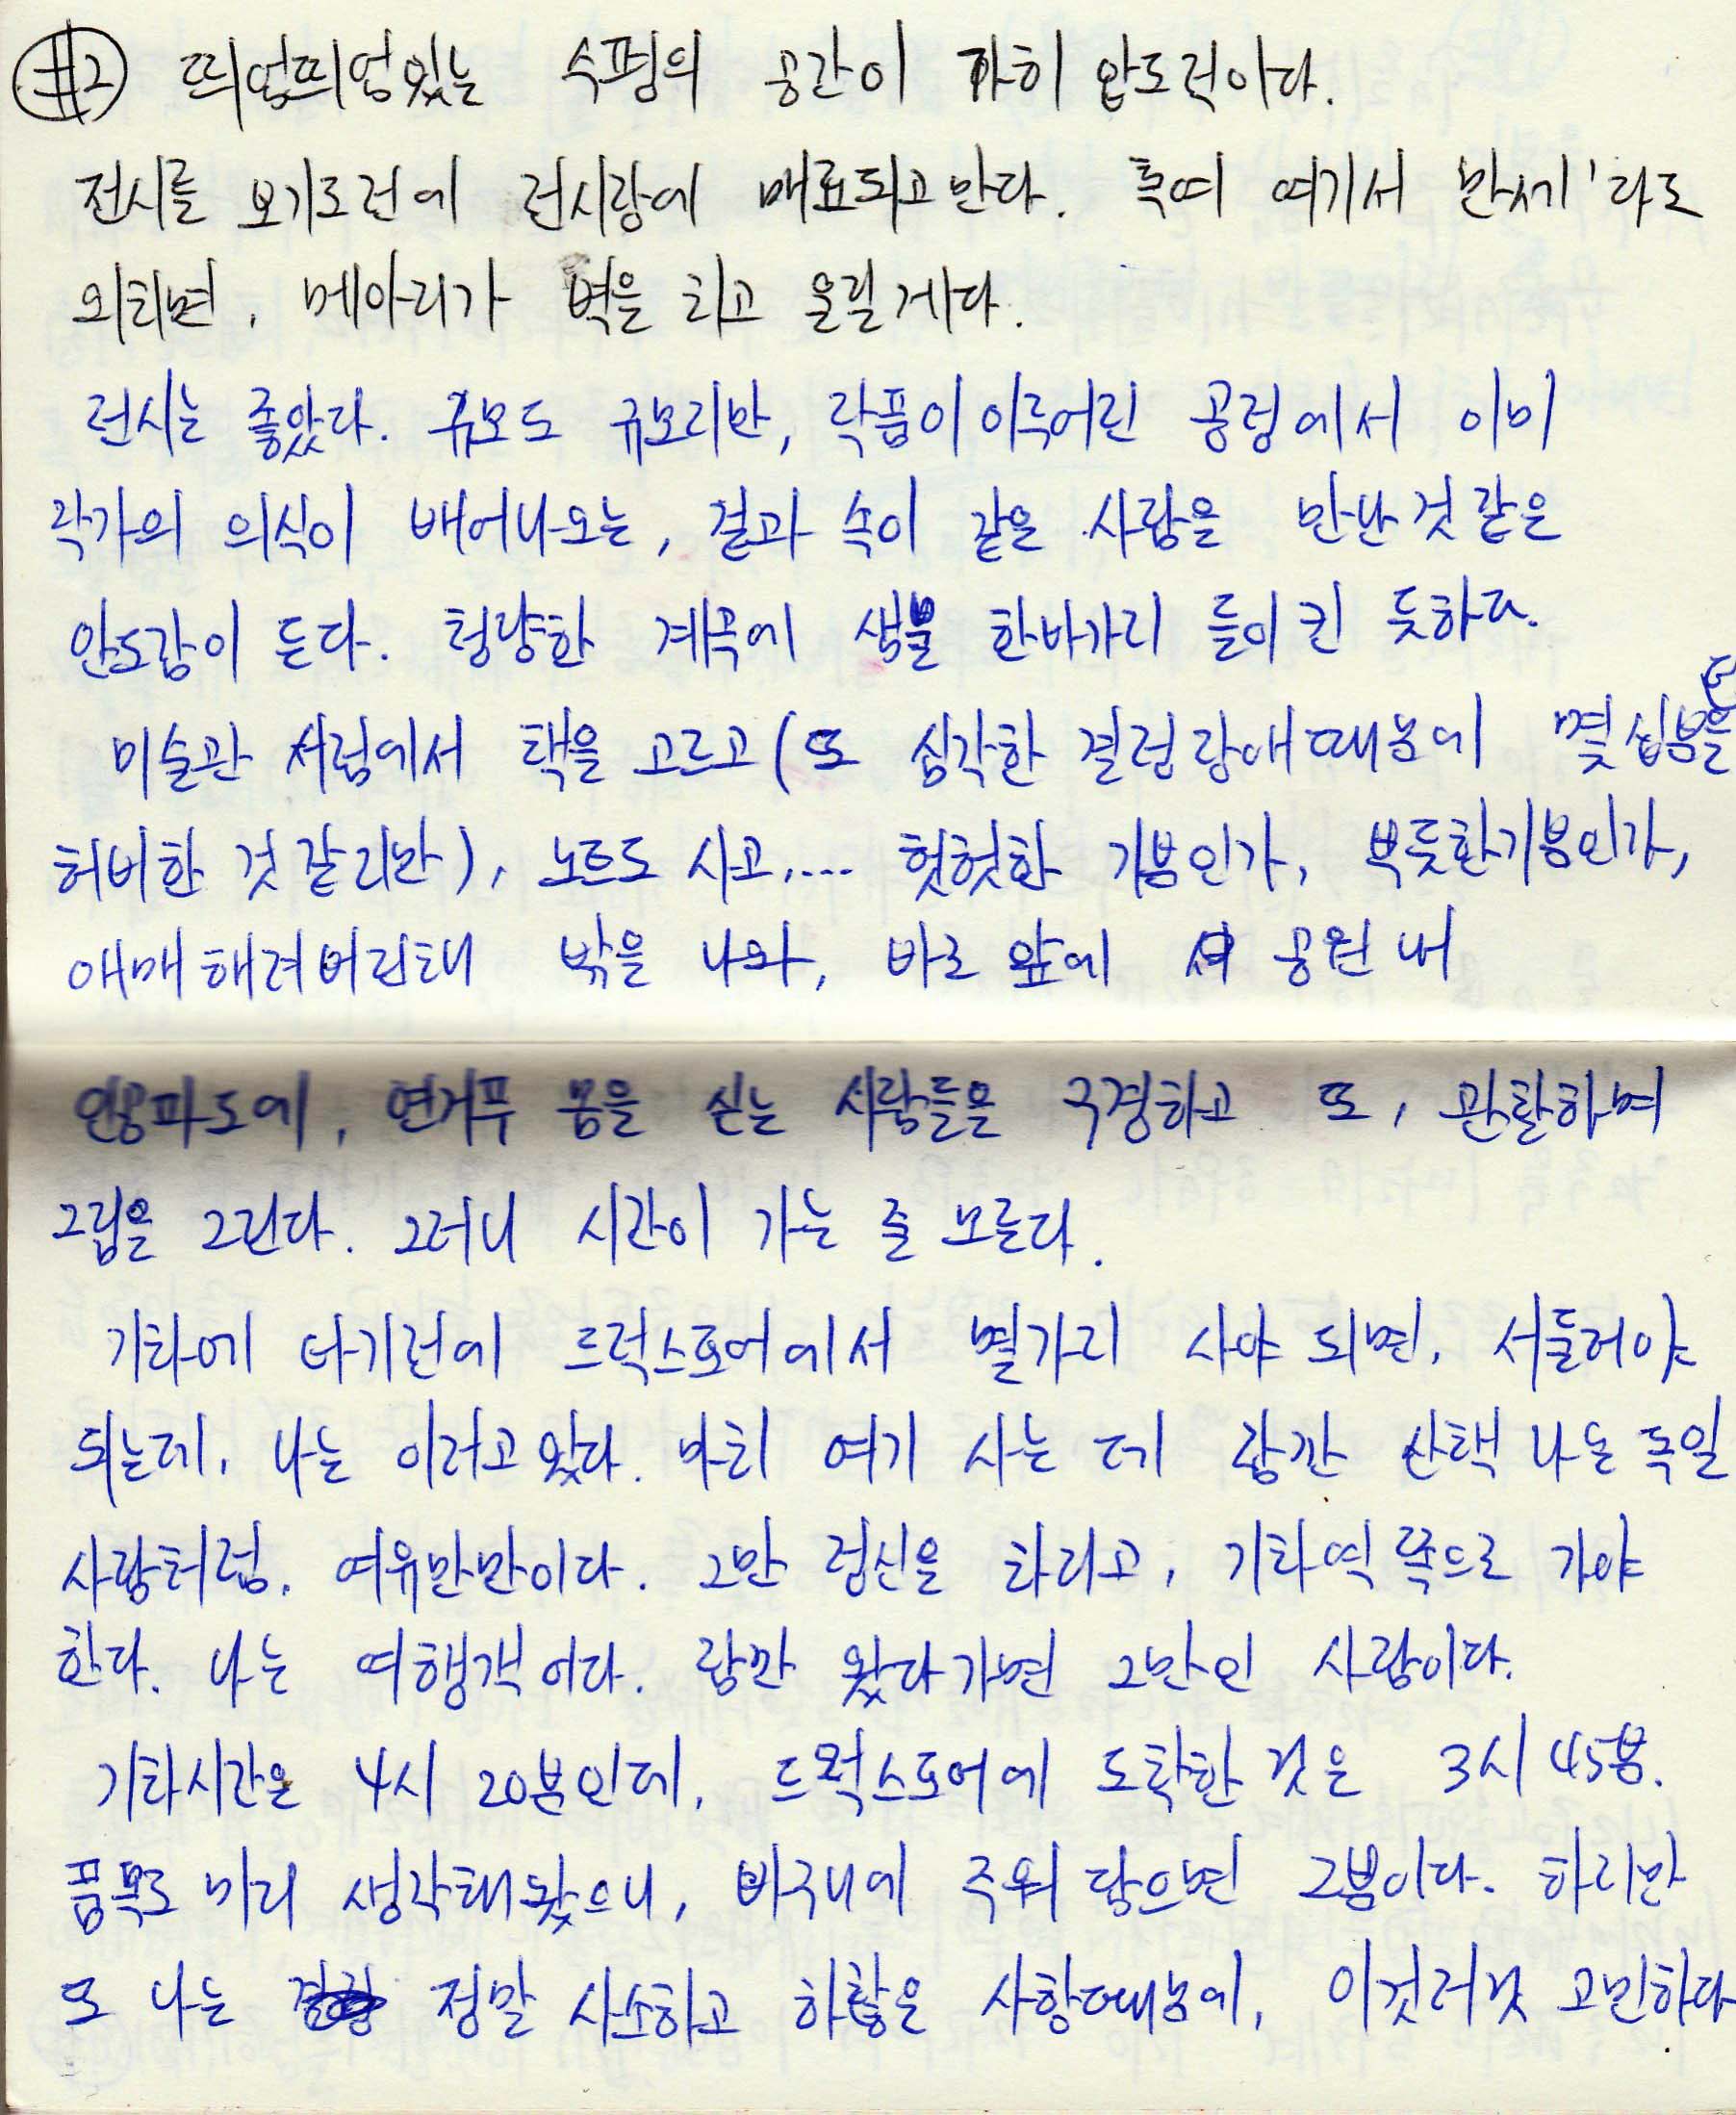 #2 띄엄띄엄있는 수평의 공간이 가히 압도적이다.
전시를 보기도전에 전시장에 매료되고 만다. 혹여 여기서 만세'라도
외치면, 메아리가 벽을 치고 울릴게다.
전시는 좋았다. 규모도 규모지만, 작품이 이루어진 공정에서 이미
작가의 의식이 배어나오는, 겉과 속이 같은 사람을 만난것 같은
안도감이 든다. 청량한 계곡에 생물 한바가지 들이킨 듯하다.
미술관 서점에서 책을 고르고(또 심각한 결정장애때문에 몇십분을
허비한 것 같지만), 노트도 사고,... 헛헛한 기분인가, 뿌듯한기분인가,
애매해져버린채 밖을 나와, 바로 앞에 공원 내
인공파도에, 연거푸 몸을 싣는 사람들을 구경하고 또, 관찰하며
그림을 그린다. 그러니 시간이 가는 줄 모른다.
기차에 타기전에 드럭스토어에서 몇가지 사야 되면, 서둘러야
되는데, 나는 이러고 있다. 마치 여기 사는 데 잠깐 산책 나온 독일
사람처럼. 여유만만이다. 그만 정신을 차리고, 기차역 쪽으로 가야
한다. 나는 여행객이다. 잠깐 왔다가면 그만인 사람이다.
기차시간은 4시 20분인데, 드럭스토어에 도착한 것은 3시 45분.
품목도 미리 생각해왔으니, 바구니에 주워 담으면 그뿐이다. 하지만
또 나는 정말 사소하고 하찮은 사항때문에, 이것저것 고민하다